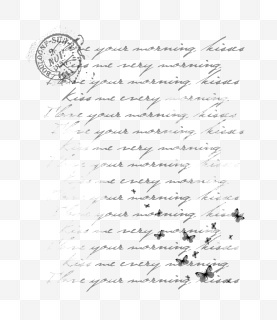 love your morning kisses
kiss me every morning
I love your morning kisses
kiss me every morning.
I love your morning kisses
I love your morning kisses
kiss me every morning.
love your morning kisses
kiss me every morning.
love your morning kisses
your morning kisses
kiss me every morning
love your morning kisses
kiss me every morning
I love your morning kisses